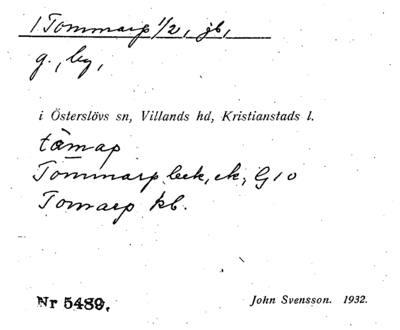 1 Tommarp 1/2, jb,
g., by,
i Österslövs sn, Villands hd, Kristianstads l.
tåmap
Tommarp bek, ek, G10
Tomarp kb.
Nr 5489.
John Svensson. 1932.